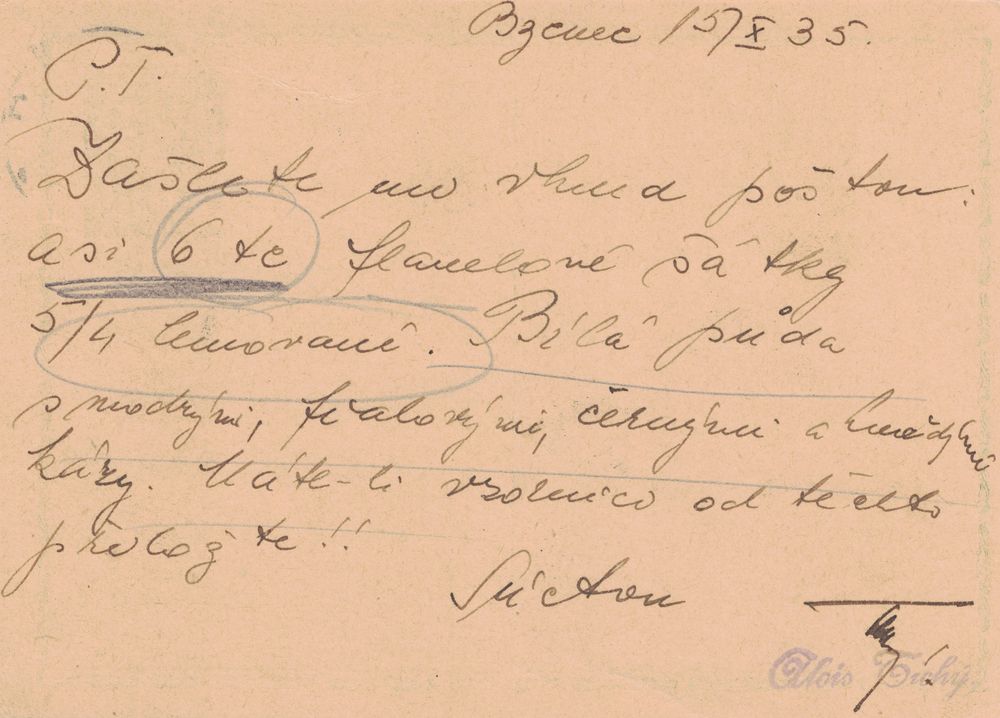 Bzenec 15/X 35.
P.T.
Zašlete mě ihned poštou:
asi 6 tc flanelové šátky
5/4 lemované. Bílá půda
s modrými, fialovými, černými a hnědými
káry. Máte-li vzornici od těchto
přiložte!!
S úctou
Tichý
Alois Tichý